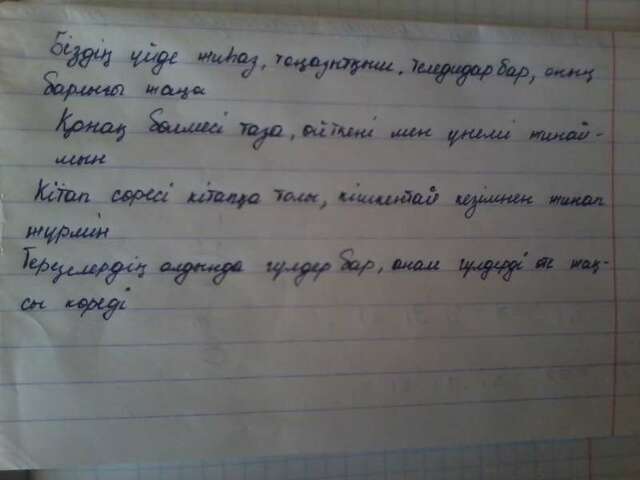 Біздің үйде жиһаз, тоңазытқыш, теледидар бар, оның
барлығы жаңа
Қонақ бөлмесі таза, өйткені мен үнемі жинай-
мын
Кітап сөресі кітапқа толы, кішкентай кезімнен жинап
жүрмін
Терезелердің алдында гүлдер бар, анам гүлдерді өте жақ-
сы көреді